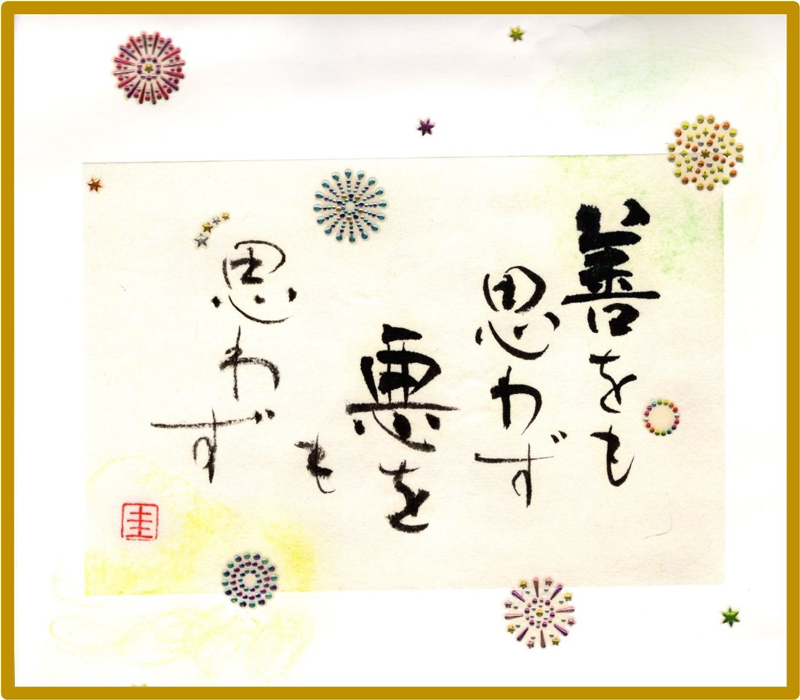 善をも
思わず
悪を
も
思わず
圭